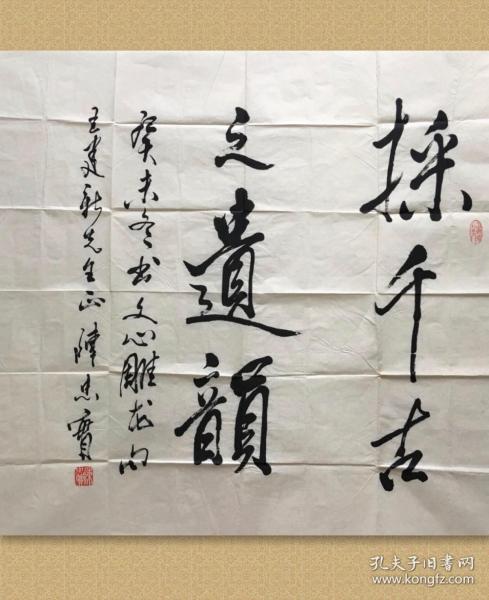 採千古
之遺韻
癸未冬书文心雕龙句
王建新先生正 陈忠實
孔夫子旧书网
www.kongfz.com